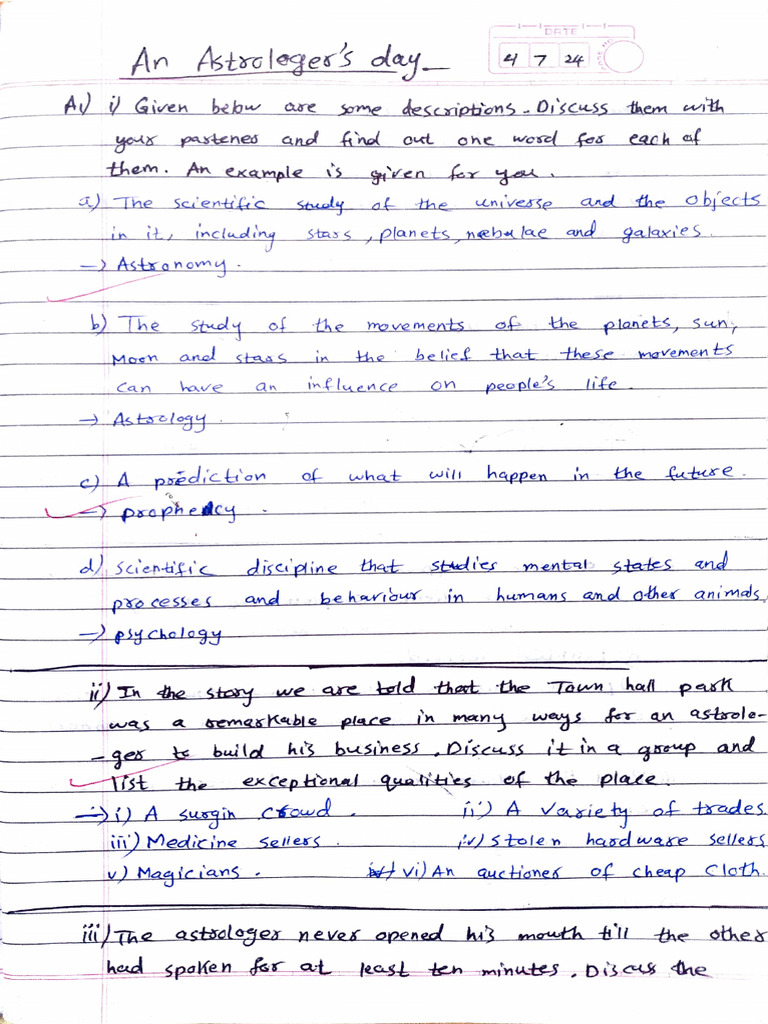 An Astrologer's day
DATE
4 7 24
A1) i) Given below are some descriptions. Discuss them with
your partener and find out one word for each of
them. An example is given for you.
a) The scientific study of the universe and the objects
in it, including stars, planets, nebulae and galaxies.
→ Astronomy.
b) The study of the movements of the planets, sun,
Moon and stars in the belief that these movements
can have an influence on people's life.
→ Astrology.
c) A prediction of what will happen in the future.
→ prophecy.
d) scientific discipline that studies mental states and
processes and behaviour in humans and other animals,
→ psychology
ii) In the story we are told that the Town hall park
was a remarkable place in many ways for an astrolo-
-ger to build his business. Discuss it in a group and
list the exceptional qualities of the place.
→ i) A surgin crowd. ii) A variety of trades.
iii) Medicine sellers. iv) stolen hardware sellers
v) Magicians. vi) An auctioner of cheap cloth.
iii) The astrologer never opened his mouth till the other
had spoken for at least ten minutes. Discus the